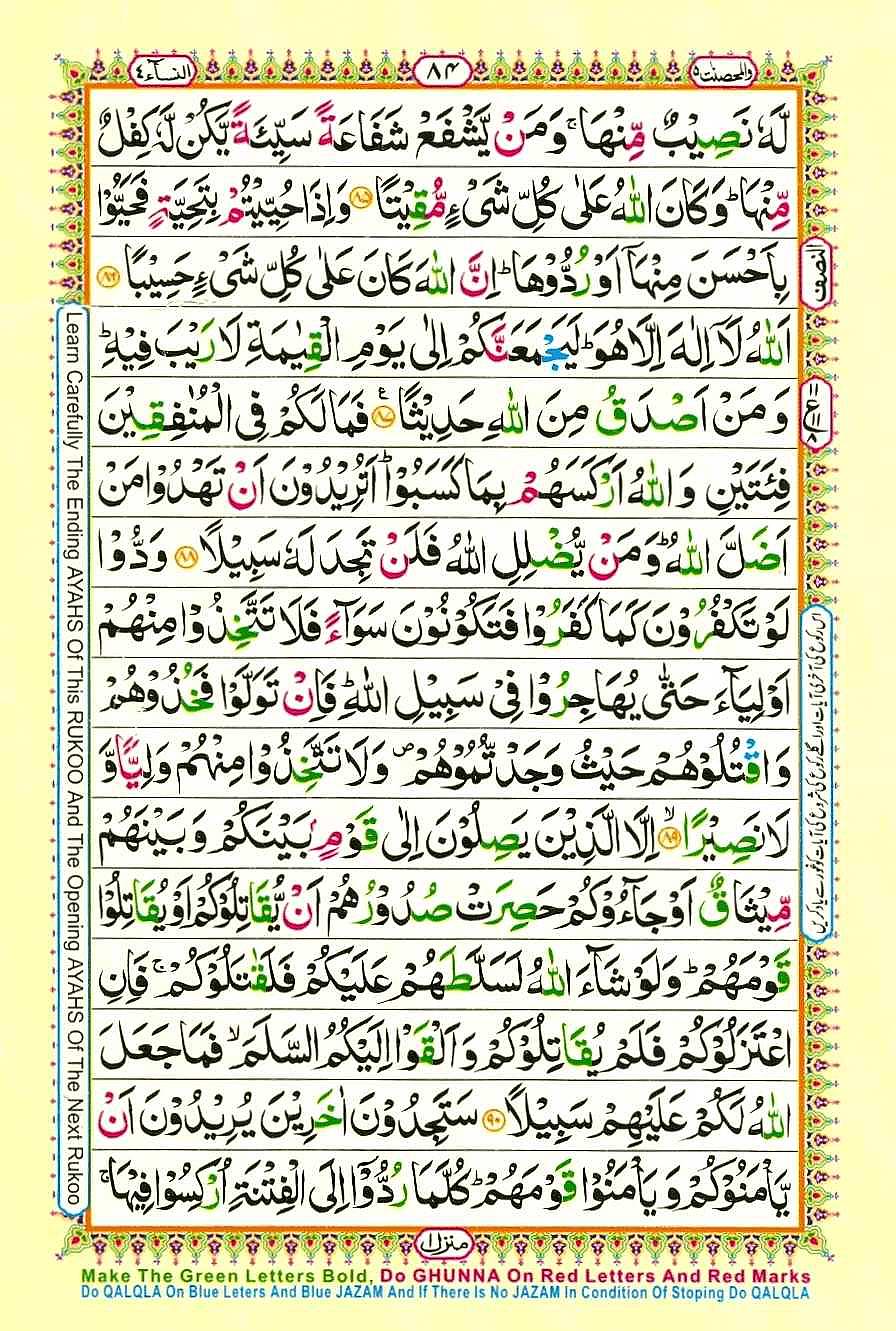 والمحصنت ۵
۸۴
النسآء ۴
لَّهٗ نَصِيْبٌ مِّنْهَا ۚ وَمَنْ يَّشْفَعْ شَفَاعَةً سَيِّئَةً يَّكُنْ لَّهٗ كِفْلٌ
مِّنْهَا ؕ وَكَانَ اللّٰهُ عَلٰى كُلِّ شَىْءٍ مُّقِيْتًا ۝۸۵ وَاِذَا حُيِّيْتُمْ بِتَحِيَّةٍ فَحَيُّوْا
بِاَحْسَنَ مِنْهَآ اَوْ رُدُّوْهَا ؕ اِنَّ اللّٰهَ كَانَ عَلٰى كُلِّ شَىْءٍ حَسِيْبًا ۝۸۶
اَللّٰهُ لَآ اِلٰهَ اِلَّا هُوَ ؕ لَيَجْمَعَنَّكُمْ اِلٰى يَوْمِ الْقِيٰمَةِ لَا رَيْبَ فِيْهِ ؕ
وَمَنْ اَصْدَقُ مِنَ اللّٰهِ حَدِيْثًا ۝۸۷ ع فَمَا لَكُمْ فِى الْمُنٰفِقِيْنَ
فِئَتَيْنِ وَاللّٰهُ اَرْكَسَهُمْ بِمَا كَسَبُوْا ؕ اَتُرِيْدُوْنَ اَنْ تَهْدُوْا مَنْ
اَضَلَّ اللّٰهُ ؕ وَمَنْ يُّضْلِلِ اللّٰهُ فَلَنْ تَجِدَ لَهٗ سَبِيْلًا ۝۸۸ وَدُّوْا
لَوْ تَكْفُرُوْنَ كَمَا كَفَرُوْا فَتَكُوْنُوْنَ سَوَآءً فَلَا تَتَّخِذُوْا مِنْهُمْ
اَوْلِيَآءَ حَتّٰى يُهَاجِرُوْا فِىْ سَبِيْلِ اللّٰهِ ؕ فَاِنْ تَوَلَّوْا فَخُذُوْهُمْ
وَاقْتُلُوْهُمْ حَيْثُ وَجَدْتُّمُوْهُمْ ۪ وَلَا تَتَّخِذُوْا مِنْهُمْ وَلِيًّا وَّ
لَا نَصِيْرًا ۝۸۹ۙ اِلَّا الَّذِيْنَ يَصِلُوْنَ اِلٰى قَوْمٍۭ بَيْنَكُمْ وَبَيْنَهُمْ
مِّيْثَاقٌ اَوْ جَآءُوْكُمْ حَصِرَتْ صُدُوْرُهُمْ اَنْ يُّقَاتِلُوْكُمْ اَوْ يُقَاتِلُوْا
قَوْمَهُمْ ؕ وَلَوْ شَآءَ اللّٰهُ لَسَلَّطَهُمْ عَلَيْكُمْ فَلَقٰتَلُوْكُمْ ۚ فَاِنِ
اعْتَزَلُوْكُمْ فَلَمْ يُقَاتِلُوْكُمْ وَاَلْقَوْا اِلَيْكُمُ السَّلَمَ ۙ فَمَا جَعَلَ
اللّٰهُ لَكُمْ عَلَيْهِمْ سَبِيْلًا ۝۹۰ سَتَجِدُوْنَ اٰخَرِيْنَ يُرِيْدُوْنَ اَنْ
يَّاْمَنُوْكُمْ وَيَاْمَنُوْا قَوْمَهُمْ ؕ كُلَّمَا رُدُّوْٓا اِلَى الْفِتْنَةِ اُرْكِسُوْا فِيْهَا ۚ
النصف
ع
Learn Carefully The Ending AYAHS Of This RUKOO And The Opening AYAHS Of The Next Rukoo
منزل ۱
Make The Green Letters Bold, Do GHUNNA On Red Letters And Red Marks
Do QALQLA On Blue Leters And Blue JAZAM And If There Is No JAZAM In Condition Of Stoping Do QALQLA